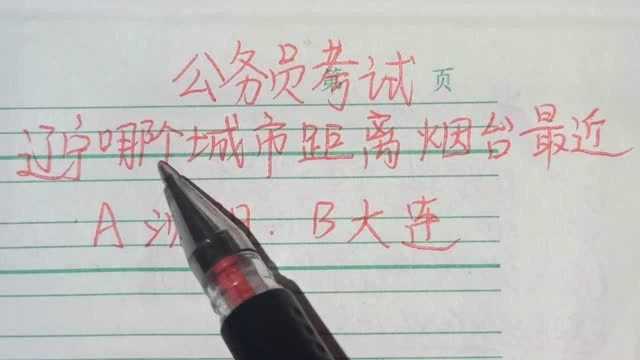 公务员考试
第 页
辽宁哪个城市距离烟台最近
A 沈阳. B 大连